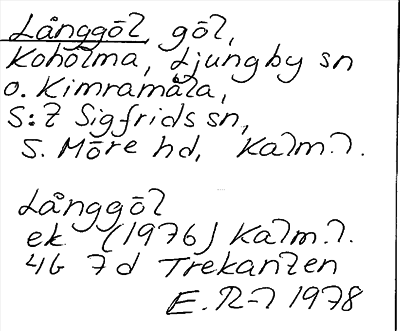 Långgöl, göl,
Koholma, Ljungby sn
o. Kimramåla,
S:t Sigfrids sn,
S. Möre hd, Kalm. l.
Långgöl
ek (1976) Kalm. l.
4G 7d Trekanten
E. 1978